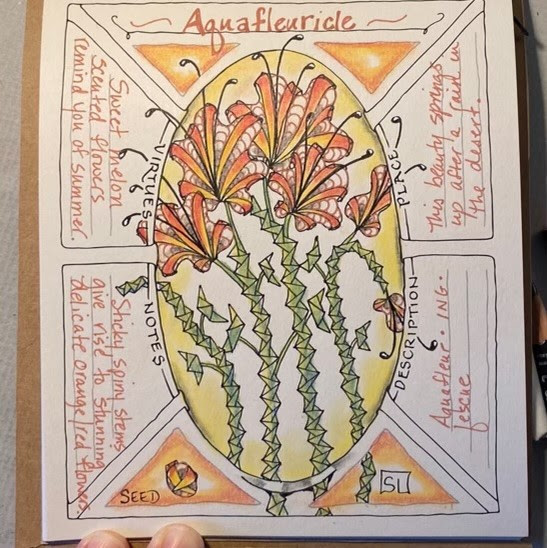 ~ Aquafleuricle ~
VIRTUES
Sweet melon
scented flowers
remind you of summer.
PLACE
This beauty springs
up after a rain in
the desert.
NOTES
Sticky spiny stems
give rise to stunning
delicate orange/red flowers
DESCRIPTION
Aquafleur · ING.
fescue
SEED
SL